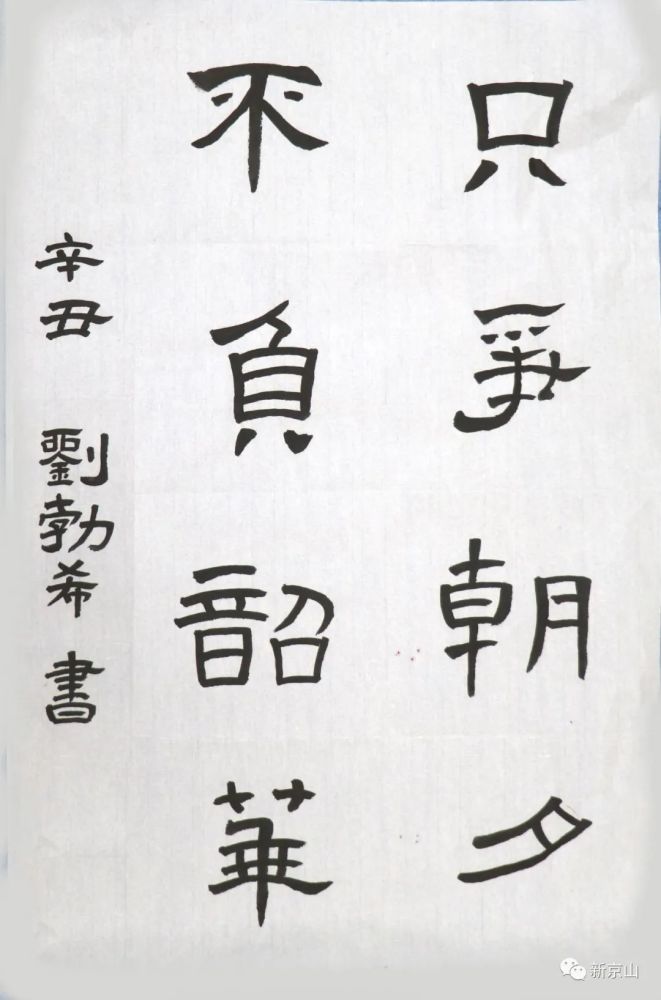 只爭朝夕
不負韶華
辛丑 劉勃希 書
新京山